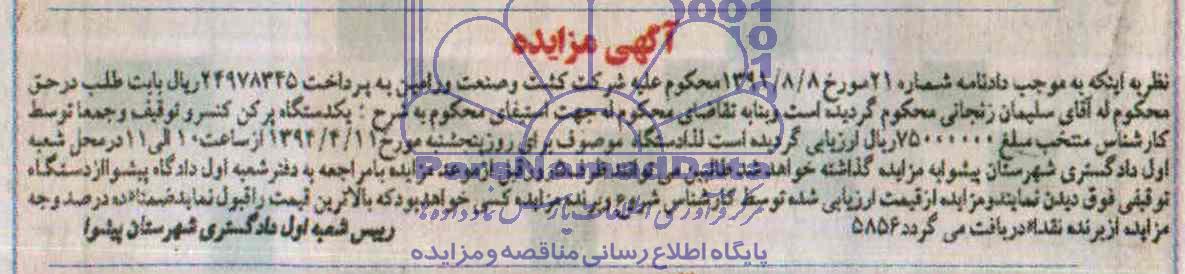 آگهی مزایده
نظر به اینکه به موجب دادنامه شماره ۲۱ مورخ ۱۳۹۱/۸/۸ محکوم علیه شرکت کشت وصنعت ورامین به پرداخت ۲۴۹۷۸۳۴۵ ریال بابت طلب درحق
محکوم له آقای سلیمان زنجانی محکوم گردیده است وبنابه تقاضای محکوم له جهت استیفای محکوم به شرح : یکدستگاه پر کن کنسرو توقیف وجمعا توسط
کارشناس منتخب مبلغ ۷۵۰۰۰۰۰۰ ریال ارزیابی گردیده است لذا دستگاه موصوف برای روز پنجشنبه مورخ ۱۳۹۴/۴/۱۱ از ساعت ۱۰ الی ۱۱ در محل شعبه
اول دادگستری شهرستان پیشوا به مزایده گذاشته خواهد شد طالبین می توانند ظرف ۵ روز قبل از موعد مزایده بامراجعه به دفتر شعبه اول دادگاه پیشوا از دستگاه
توقیفی فوق دیدن نمایند ومزایده از قیمت ارزیابی شده توسط کارشناس شروع وبرنده مزایده کسی خواهد بود که بالاترین قیمت را قبول نماید ضمنا ده درصد وجه
مزایده از برنده نقدا دریافت می گردد ۵۸۵۶
رییس شعبه اول دادگستری شهرستان پیشوا
ParsNamadData
مرکز فرآوری اطلاعات پارس نماد داده ها
پایگاه اطلاع رسانی مناقصه و مزایده